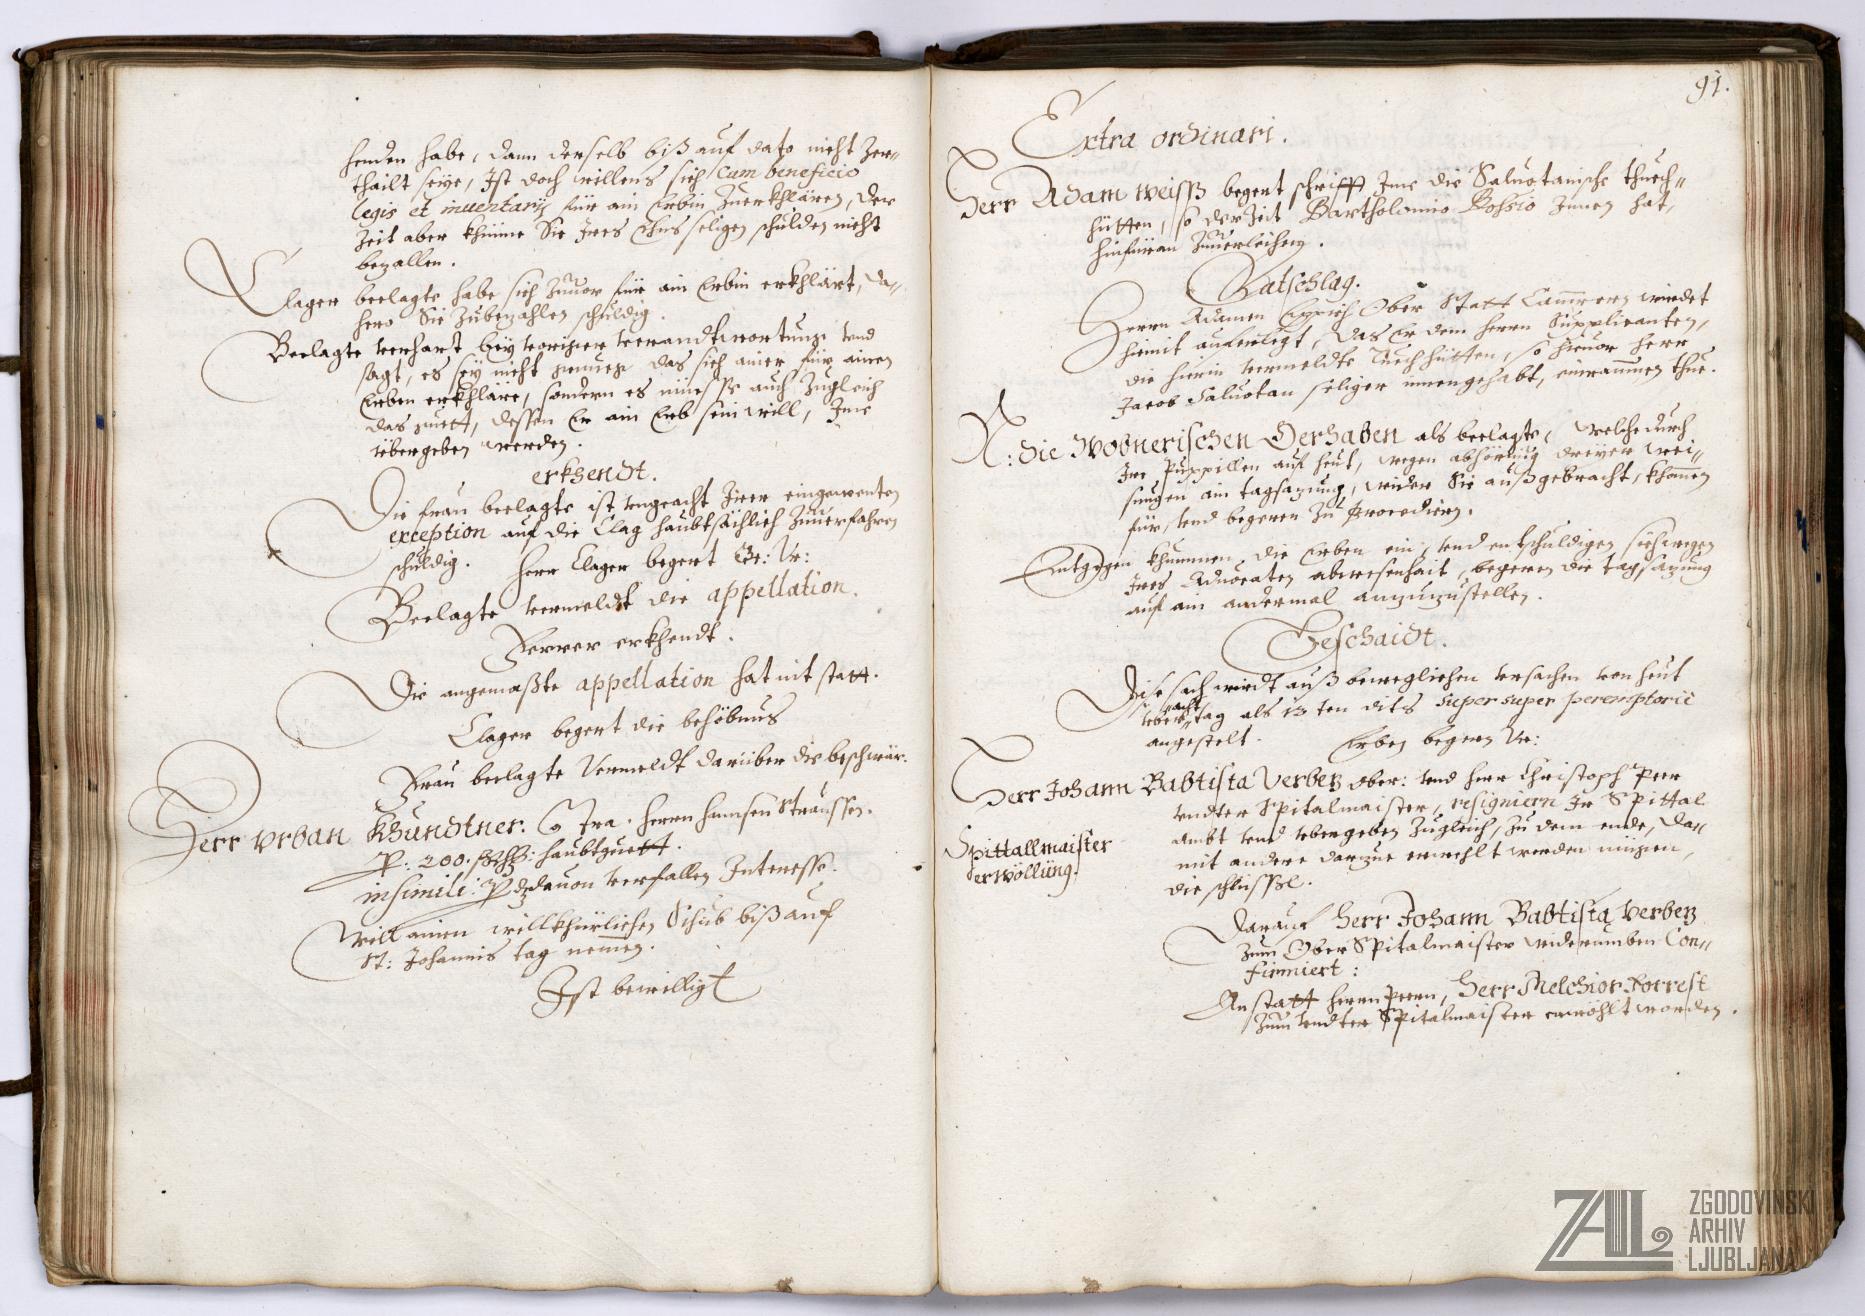 henden habe, dann derselb biß auf dato nicht Zer-
thailt seÿe, Ist doch willens sich cum beneficio
legis et inuentarij für ain Erbin Zuerkhlären, der
Zeit aber khünne Sie Ires Ehrs seligen schulden nicht
bezallen.
Clager beclagte habe sich Zuuor für ain Erbin erkhlärt, Da-
hero Sie Zubezahlen schuldig.
Beclagte verhart beÿ voriger verandtwortung vnd
sagt, es seÿ nicht genueg das sich ainer für ainen
Erben erkhläre, sondern es müesse auch Zugleich
das guett, dessen Er ain Erb sein will, Ime
übergeben werden.
erkhendt.
Die frau beclagte ist vngeacht Irer eingewenten
exception auf die Clag haubtsächlich Zuuerfahren
schuldig. Herr Clager begert Gr: Ur:
Beclagte vermeldt die appellation.
Ferrer erkhendt.
Die angemaßte appellation hat nit statt.
Clager begert die behöbnus
Frau beclagte Vermeldt darüber die beschwär.
Herr Vrban Khundtner. Contra. Herrn Hannsen Straussen.
P: 200. haubtguett.
in simili: P dauon verfallen Interesse.
Will ainen willkhürlichen Schub biß auf
St: Johannis tag nemen.
Ist bewilligt
91.
Extra ordinari.
Herr Adam Weiss begert schrifft Ime die Saluotanische thuech-
hütten, so der Zeit Bartholomio Bossio Innen hat,
hinfüran Zuuerleihen.
Ratschlag.
Herrn Adamen Eppich Ober Statt Cammrern wirdet
hiemit auferlegt, das Er dem herrn Supplicanten,
die hierin vermeldte Tuechhütten, so hieuor herr
Jacob Saluotan seliger innengehabt, einraumen thue.
N: die Wobnerischen Gerhaben als beclagte, welche durch
Ire Puppillen auf heut, wegen abhörung dreÿer wei-
sungen ain tagsazung, wider Sie außgebracht, khomen
für, vnd begeren Zu Procediern.
Entgegen khummen, die Erben ein, vnd entschuldigen sich wegen
Ires Aduocaten abwesenhait, begeren die tagsazung
auf ain andermal anzuzustellen.
Beschaidt.
Dise sach wirdt auß beweglichen vrsachen von heut
über acht tag als 13 ten dits super super peremptorie
angestelt. Erben begern Ur:
Herr Johann Babtista Verbez ober: vnd herr Christoph Peer
vndter Spitalmaister, resigniern Ir Spittal
Spittallmaister
erwöllung.
ambt vnd übergeben Zugleich, Zu dem ende, da-
mit andere darzue erwehlt werden mügen,
die schlüssl.
Darauf Herr Johann Babtista Verbez
Zum Ober Spitalmaister widerumben Con-
firmiert:
Anstatt herrn Peern, Herr Melchior Forrest
Zum vndter Spitalmaister erwöhlt worden.
ZAL
ZGODOVINSKI
ARHIV
LJUBLJANA